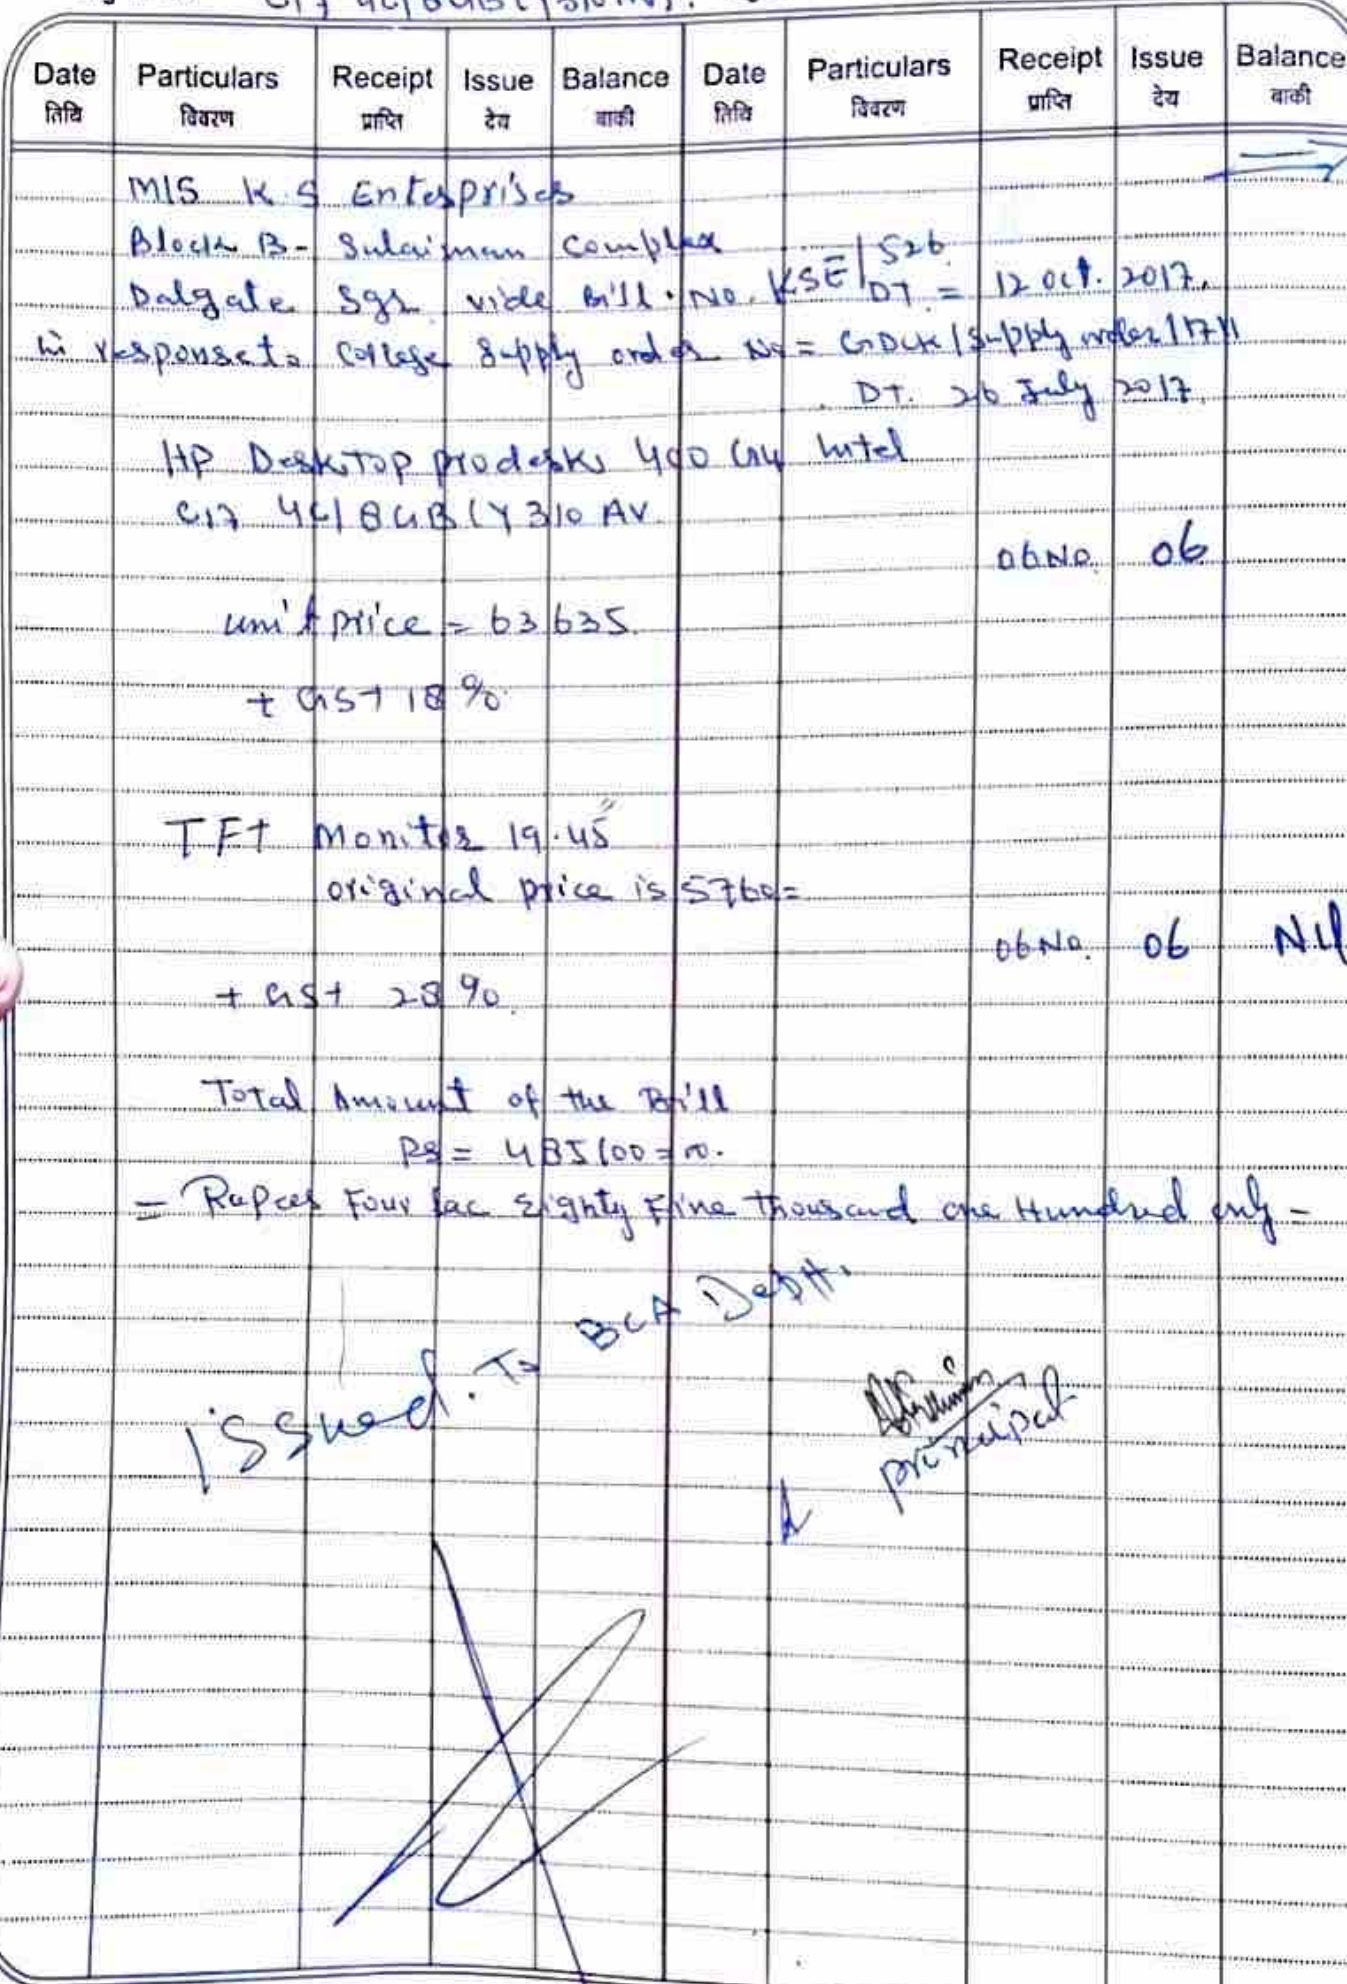 Date Particulars Receipt Issue Balance Date Particulars Receipt Issue Balance
तिथि विवरण प्राप्ति देय बाकी तिथि विवरण प्राप्ति देय बाकी
M/S K.S Enterprises
Block B- Sulaiman Complex
Dalgate Sgr vide Bill No. KSE/526 DT = 12 Oct. 2017.
in response to College Supply order No = GDCK/Supply order/17/
DT. 26 July 2017
HP Desktop prodesk 400 G4 Intel
Ci7 4C/8GB (Y310 AV
06 No. 06
unit price = 63635
+ GST 18%
TFT Monitor 19.45"
original price is 5760=
06 No. 06 Nil
+ GST 28%
Total Amount of the Bill
Rs = 485100=00.
= Rupees Four lac Eighty Five Thousand one Hundred only -
issued. To BCA Deptt.
principal